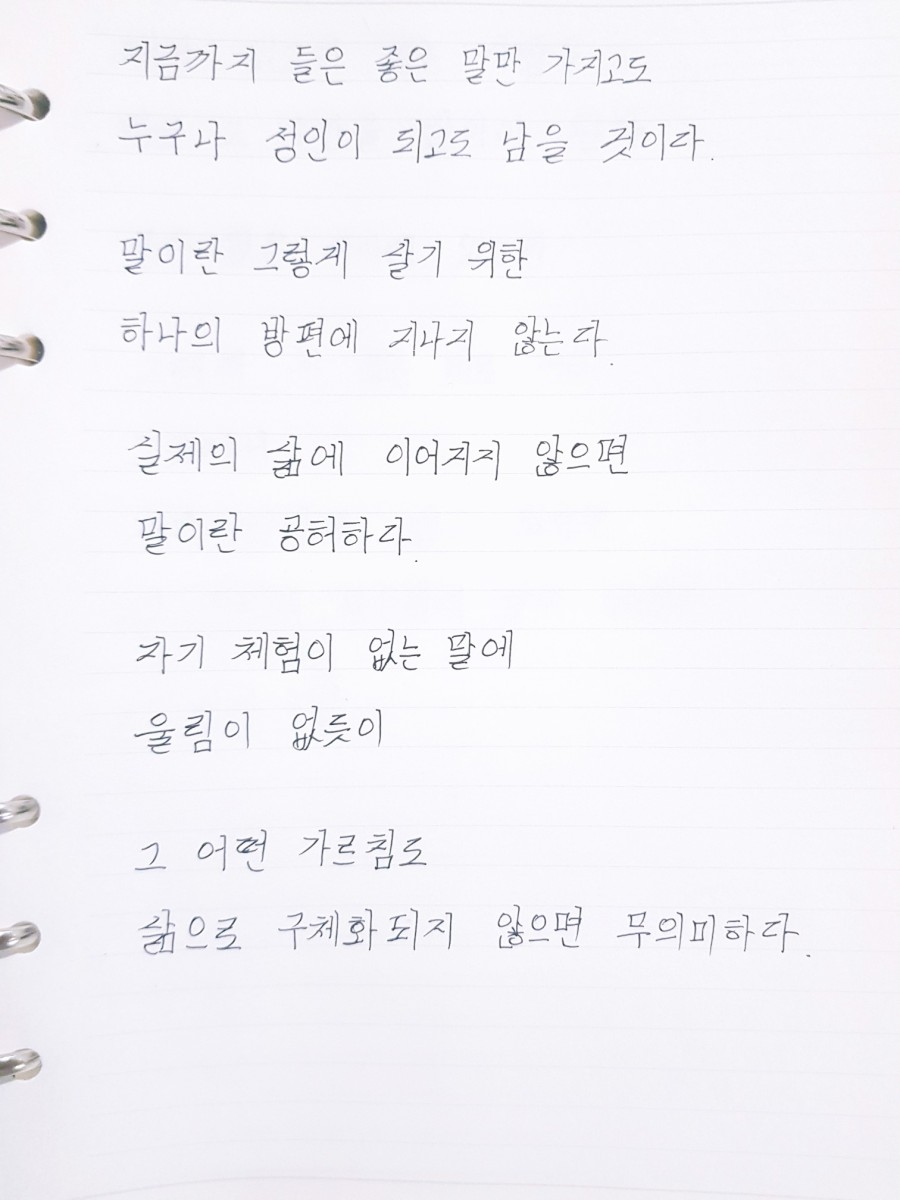 지금까지 들은 좋은 말만 가지고도
누구나 성인이 되고도 남을 것이다.
말이란 그렇게 살기 위한
하나의 방편에 지나지 않는다.
실제의 삶에 이어지지 않으면
말이란 공허하다.
자기 체험이 없는 말에
울림이 없듯이
그 어떤 가르침도
삶으로 구체화되지 않으면 무의미하다.